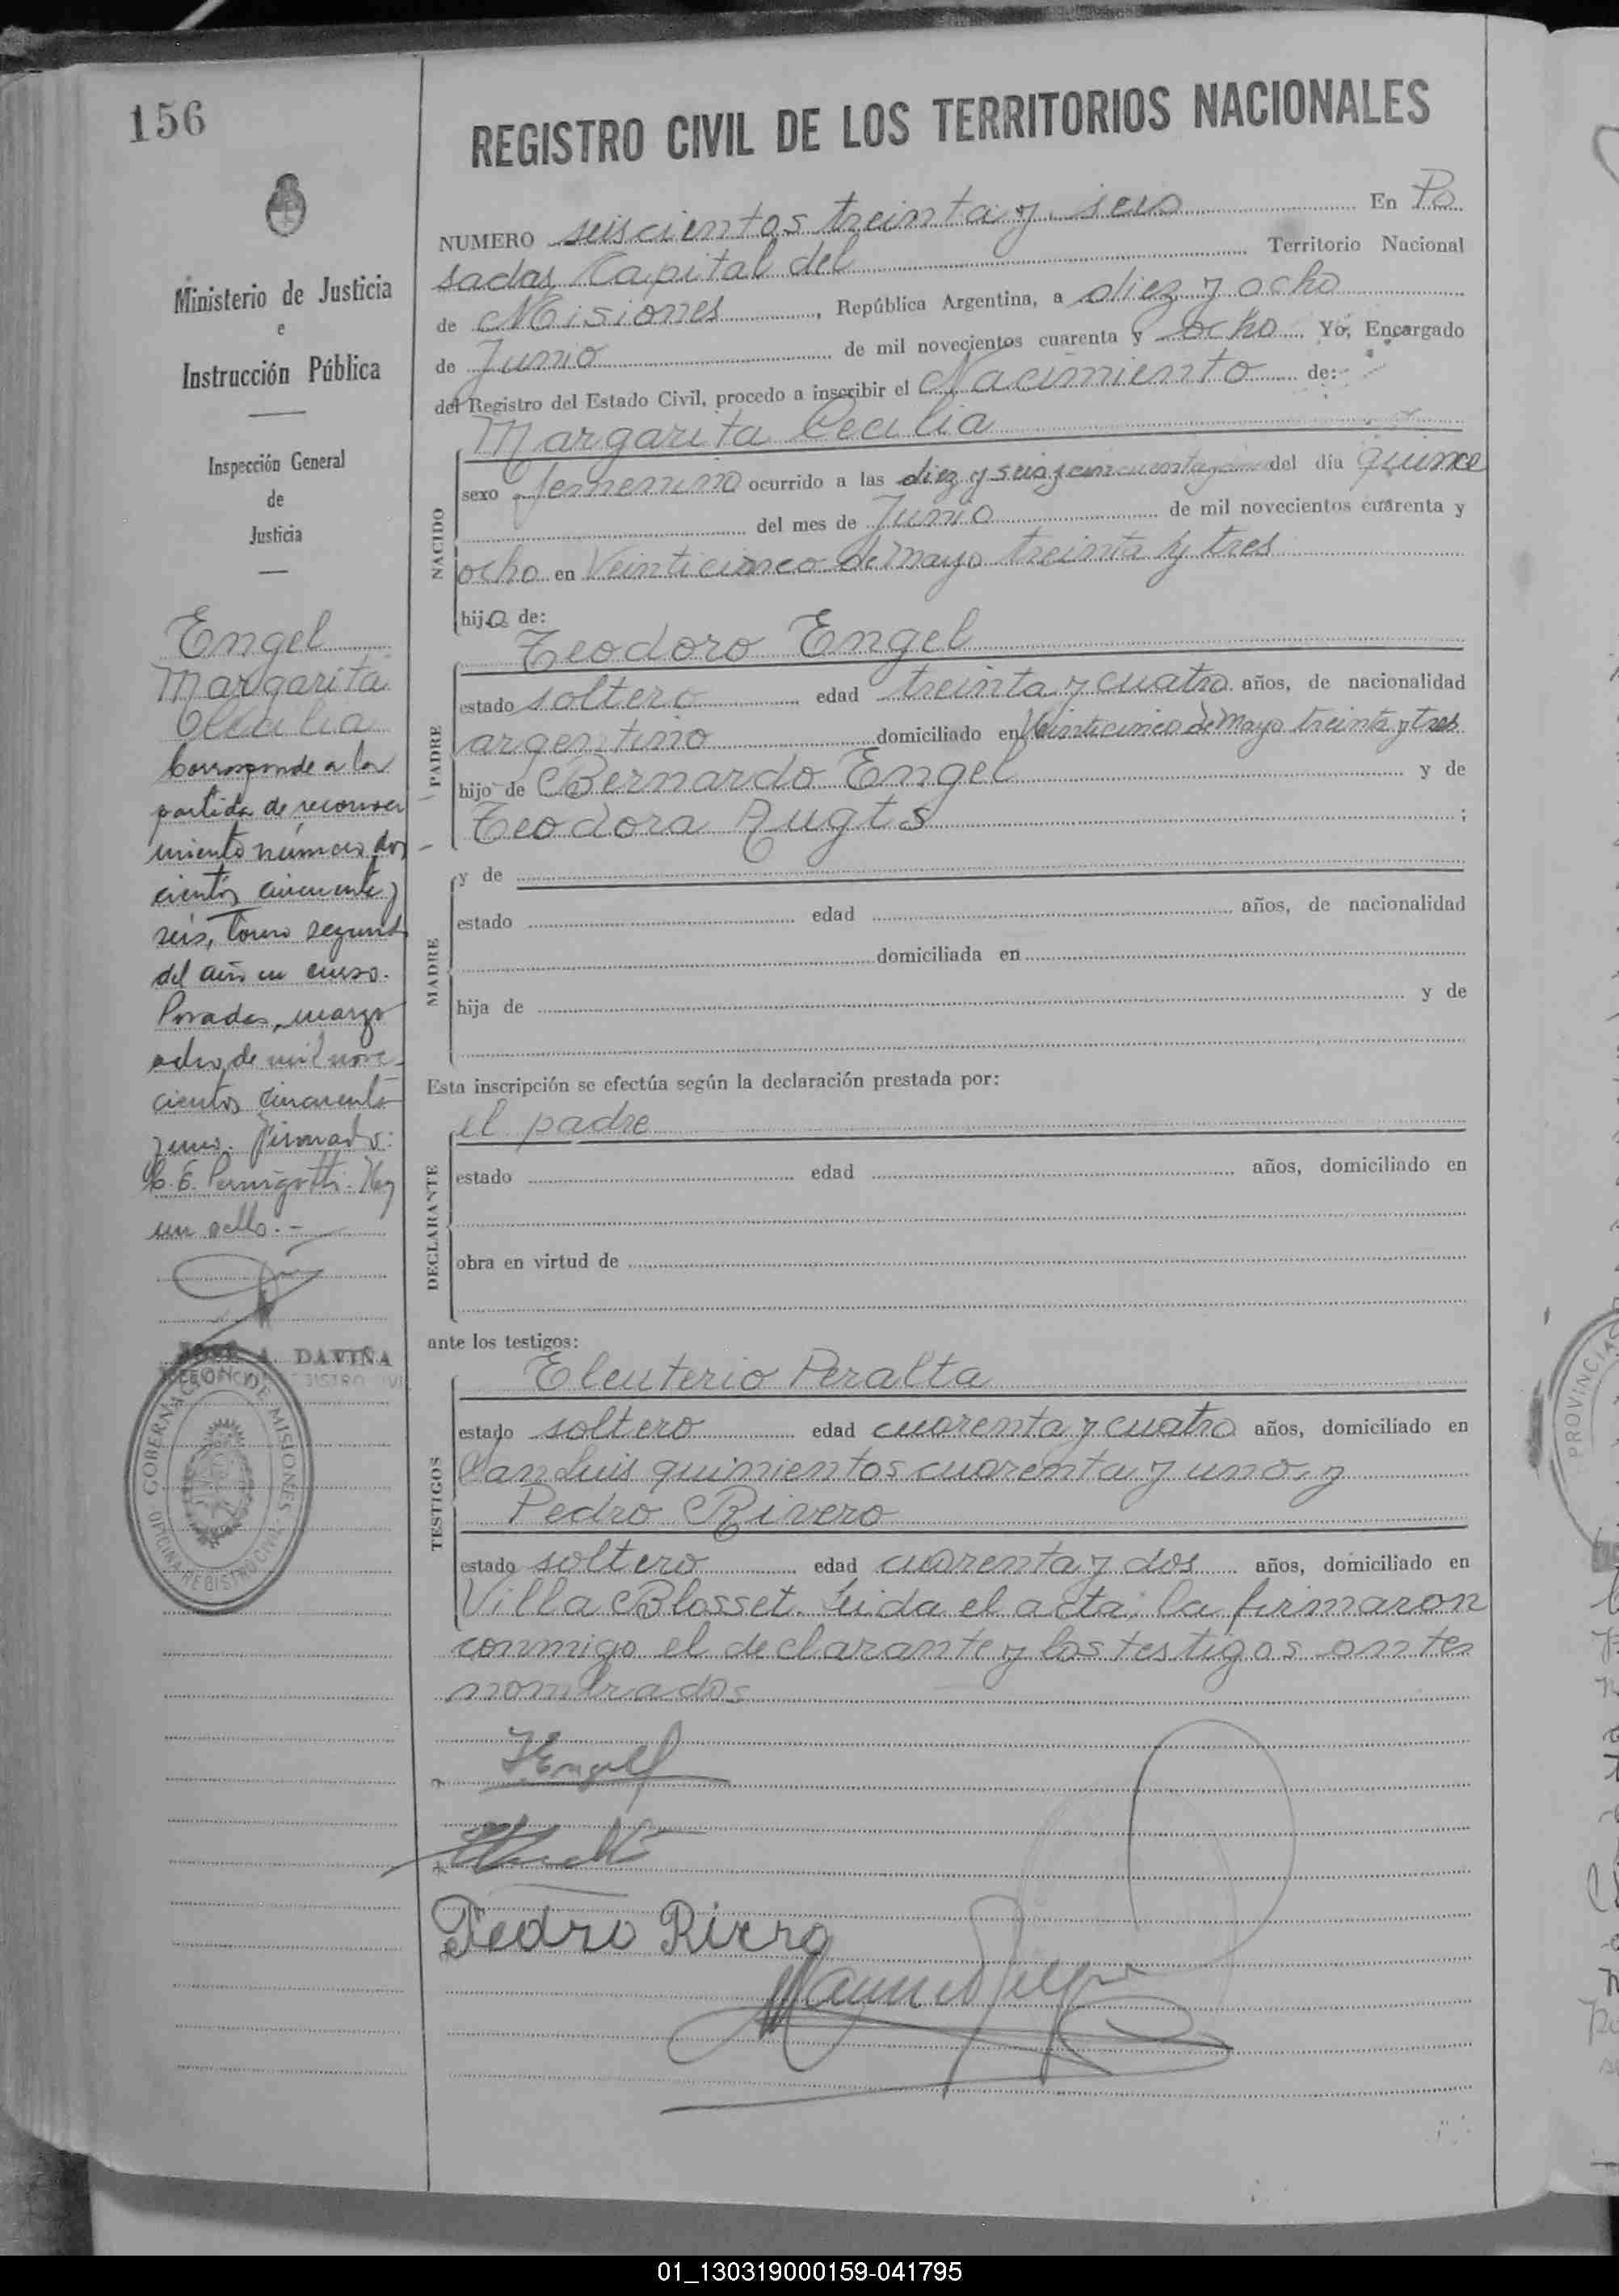 156
REGISTRO CIVIL DE LOS TERRITORIOS NACIONALES
Ministerio de Justicia
e
Instrucción Pública
Inspección General
de
Justicia
Engel
Margarita
Cecilia
Corresponde a la
partida de reconoci
miento número dos
cientos cincuenta y
seis, tomo segundo
del año en curso.
Posadas, marzo
ocho de mil nove-
cientos cincuenta
y uno. Firmado:
C. E. Pernigotti. Hay
un sello.-
JOSÉ A. DAVIÑA
GOBERNACION DE MISIONES
OFICINA REGISTRO CIVIL
NUMERO seiscientos treinta y seis En Po
sadas, Capital del Territorio Nacional
de Misiones, República Argentina, a diez y ocho
de Junio de mil novecientos cuarenta y ocho Yo, Encargado
del Registro del Estado Civil, procedo a inscribir el Nacimiento de:
NACIDO
Margarita Cecilia
sexo femenino ocurrido a las diez y seis y cincuenta y del día quince
del mes de Junio de mil novecientos cuarenta y
ocho en Veinticinco de Mayo treinta y tres
hija de:
PADRE
Teodoro Engel
estado soltero edad treinta y cuatro años, de nacionalidad
argentino domiciliado en Veinticinco de Mayo treinta y tres
hijo de Bernardo Engel y de
Teodora Augts ;
MADRE
y de
estado edad años, de nacionalidad
domiciliada en
hija de y de
Esta inscripción se efectúa según la declaración prestada por:
DECLARANTE
el padre
estado edad años, domiciliado en
obra en virtud de
ante los testigos:
TESTIGOS
Eleuterio Peralta
estado soltero edad cuarenta y cuatro años, domiciliado en
San Luis quinientos cuarenta y uno, y
Pedro Rivero
estado soltero edad cuarenta y dos años, domiciliado en
Villa Blosset. Leida el acta, la firmaron
conmigo el declarante y los testigos antes
nombrados
TEngel
Pedro Riero
PROVINCIA
01_130319000159-041795